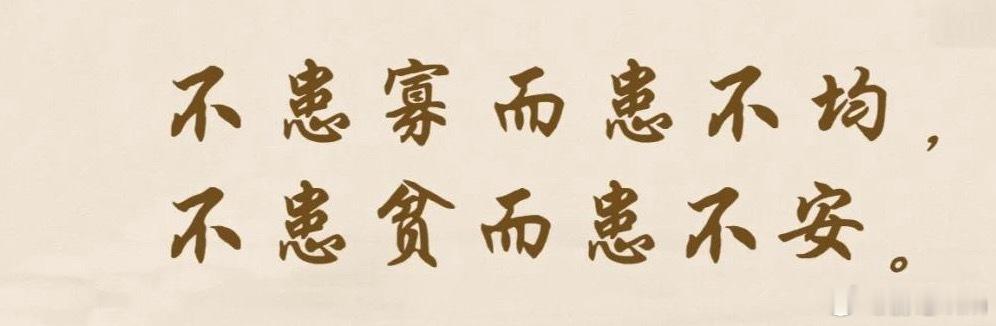 不患寡而患不均，
不患贫而患不安。